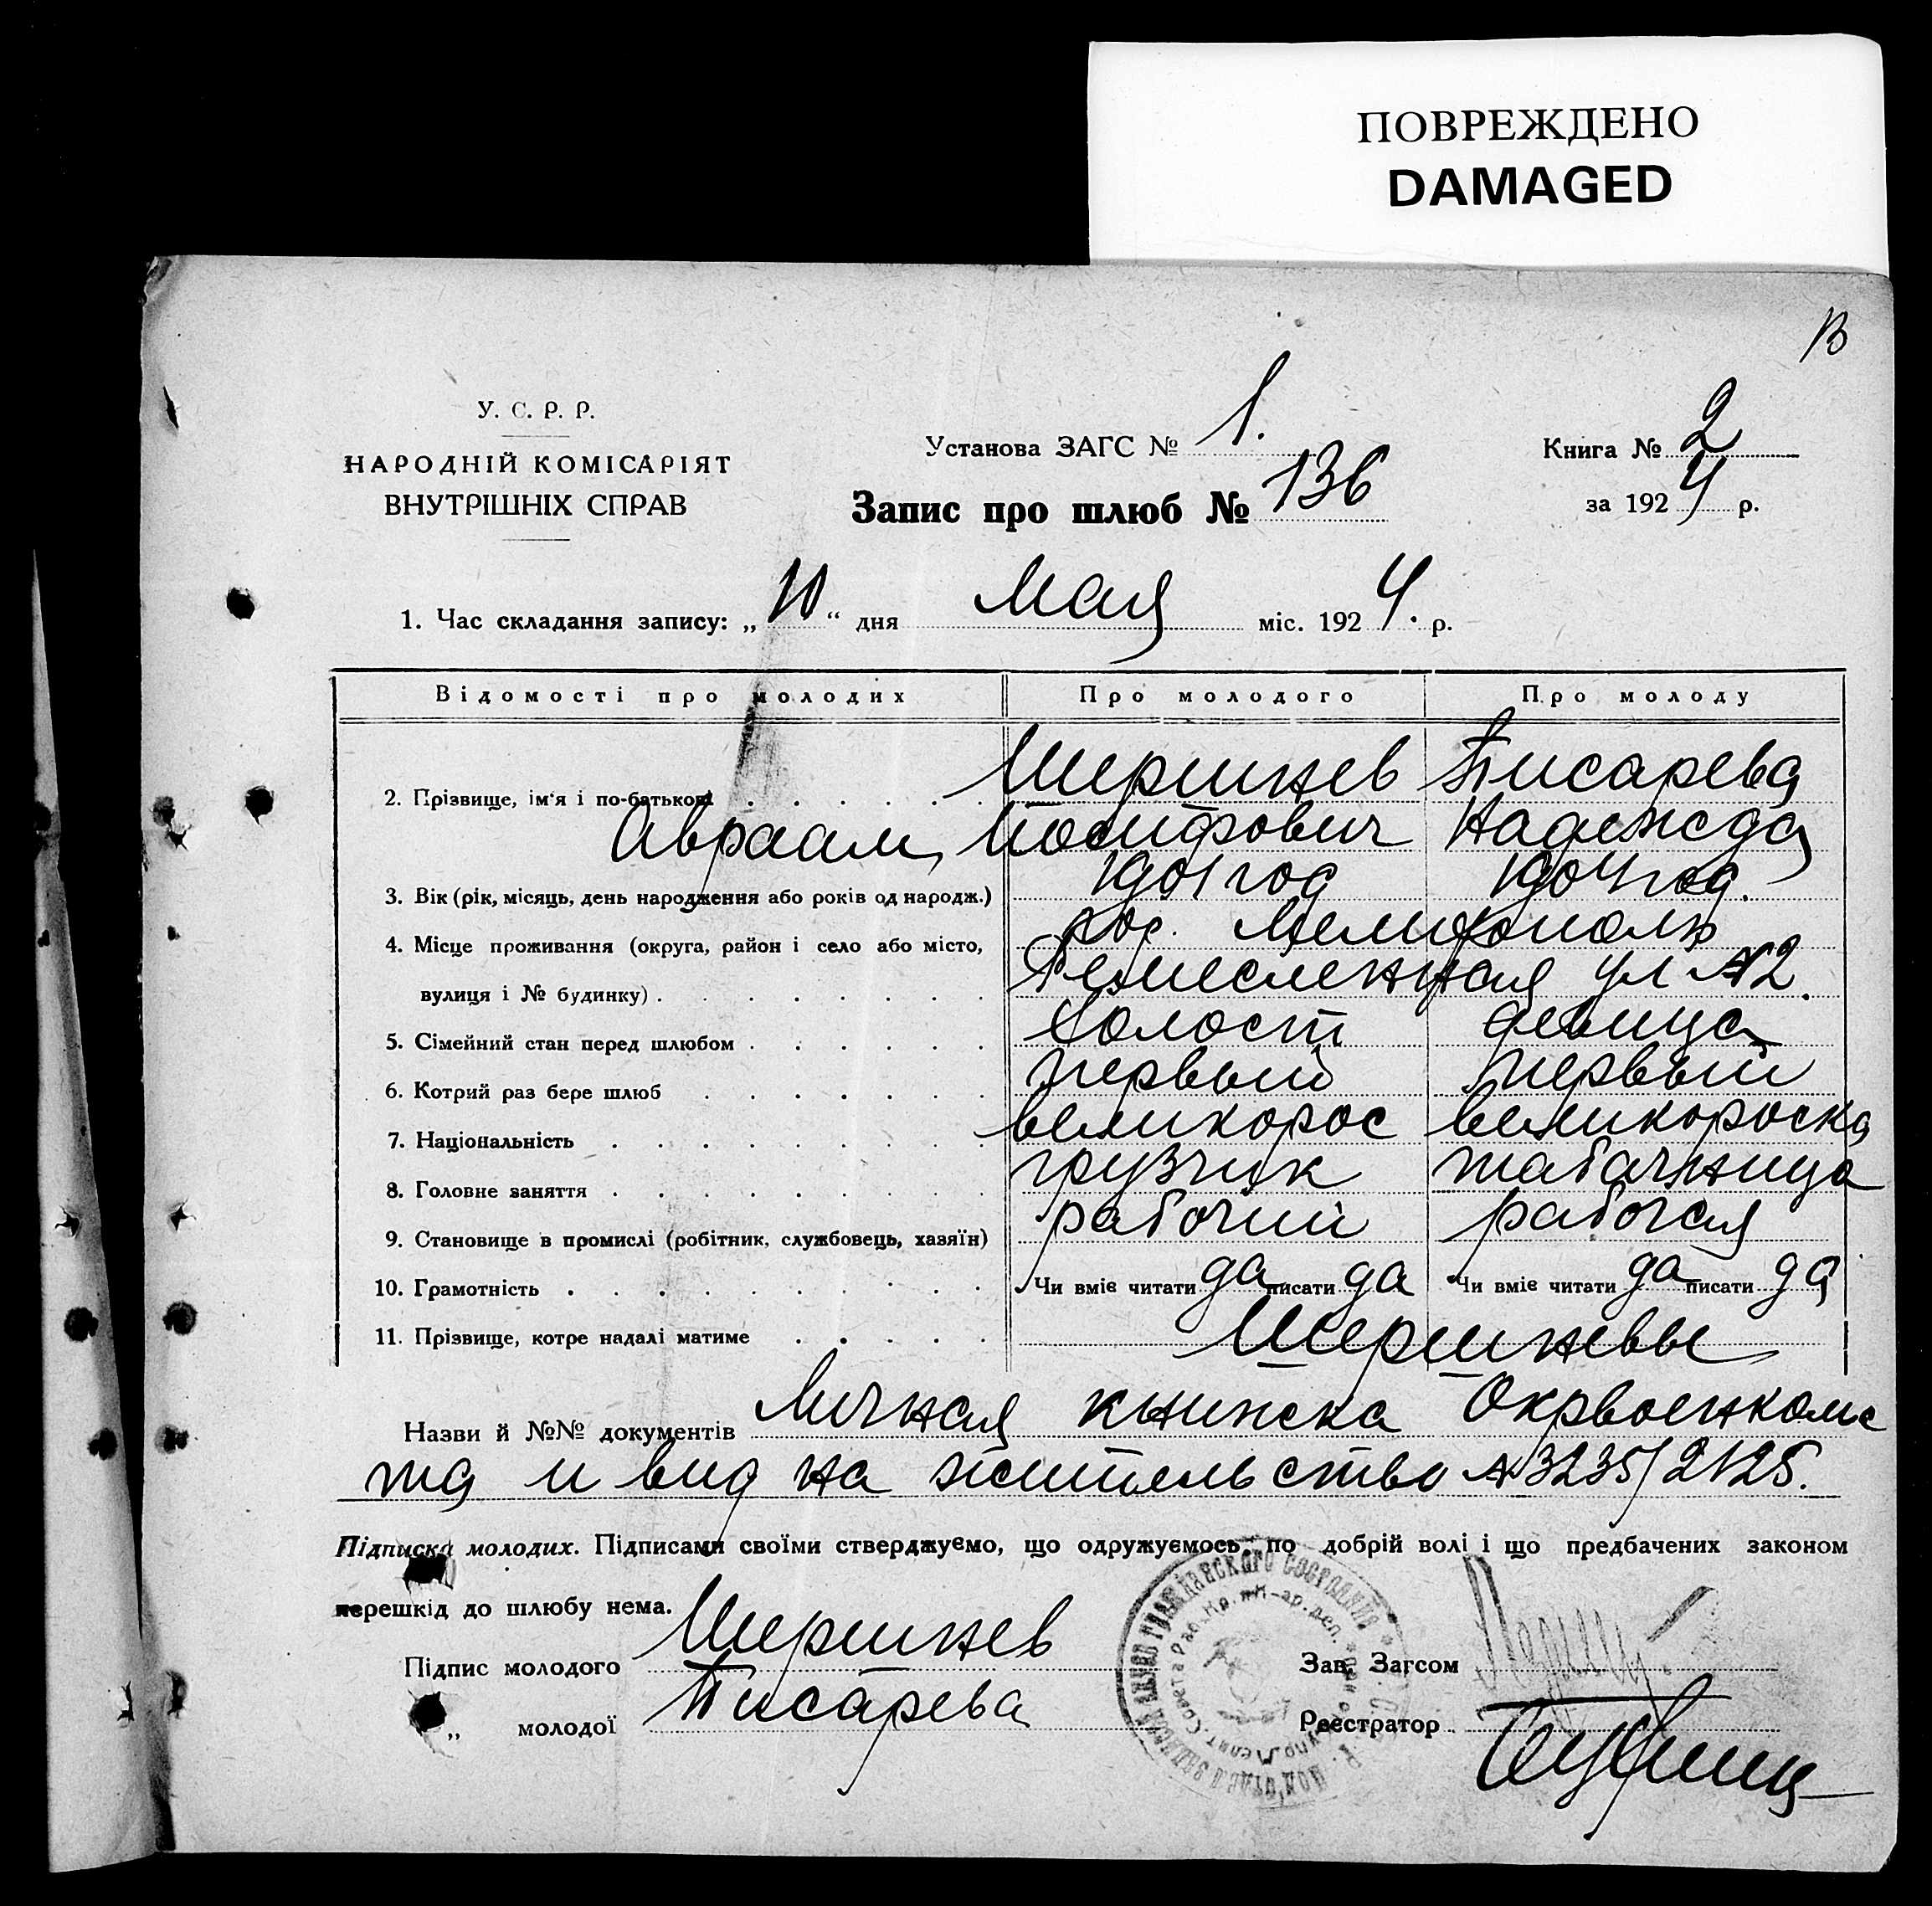 ПОВРЕЖДЕНО
DAMAGED
В
У. С. Р. Р.
НАРОДНІЙ КОМІСАРІЯТ
ВНУТРІШНІХ СПРАВ
Установа ЗАГС № 1.
Запис про шлюб № 136
Книга № 2
за 1924 р.
1. Час складання запису: „10“ дня Мая міс. 1924. р.
Відомості про молодих Про молодого Про молоду
2. Прізвище, ім'я і по-батькові Шершнев Писарева
Авраам Иосифович Надежда
3. Вік (рік, місяць, день народження або років од народж.) 1901 год 1904 год.
4. Місце проживання (округа, район і село або місто, гор. Мелитополь
вулиця і № будинку) Ремесленная ул № 2.
5. Сімейний стан перед шлюбом холост девица
6. Котрий раз бере шлюб первый первый
7. Національність великорос великороска
8. Головне заняття грузчик табачница
9. Становище в промислі (робітник, службовець, хазяїн) рабочий рабочая
10. Грамотність Чи вміє читати да писати да Чи вміє читати да писати да
11. Прізвище, котре надалі матиме Шершневы
Назви й №№ документів Личная книжка Окрвоенкома
та и вид на жительство № 3235/2125.
Підписка молодих. Підписами своїми стверджуємо, що одружуємось по добрій волі і що предбачених законом
перешкід до шлюбу нема.
Підпис молодого Шершнев
„ молодої Писарева
Зав. Загсом
Реєстратор